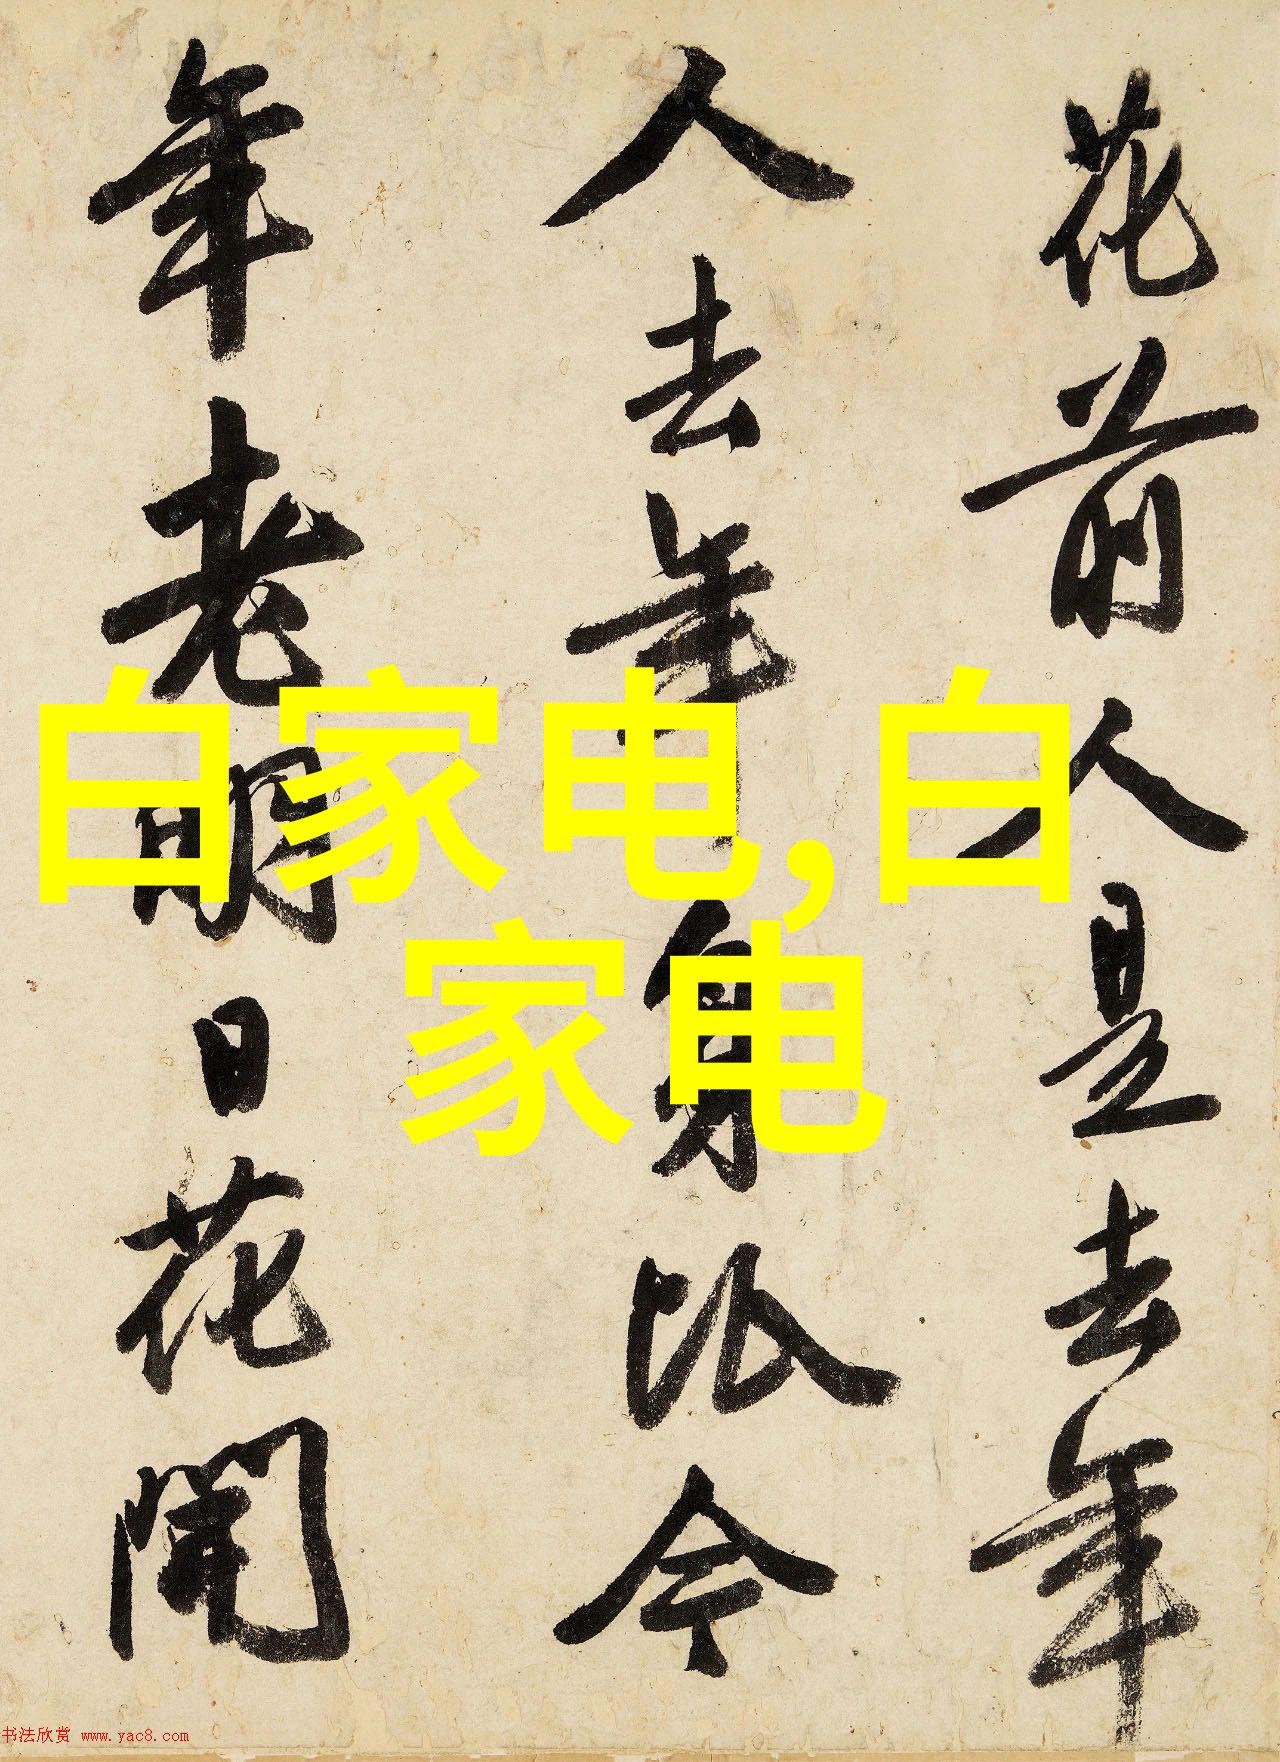 花前人是去年
人去年身比今
年老明日花開
白家电,白
家电
书法欣赏 www.yac8.com